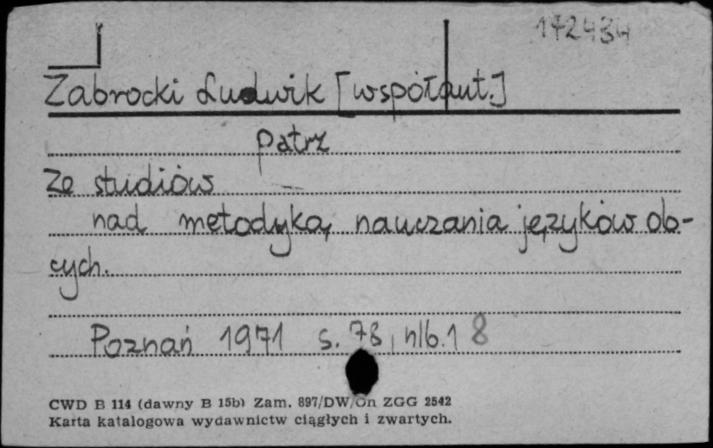 172434
Zabrocki Ludwik [współaut.]
patrz
Ze studiów
nad metodyką nauczania języków ob-
cych.
Poznań 1971 s. 78, nlb. 1 8
CWD B 114 (dawny B 15b) Zam. 897/DW/Gn ZGG 2542
Karta katalogowa wydawnictw ciągłych i zwartych.